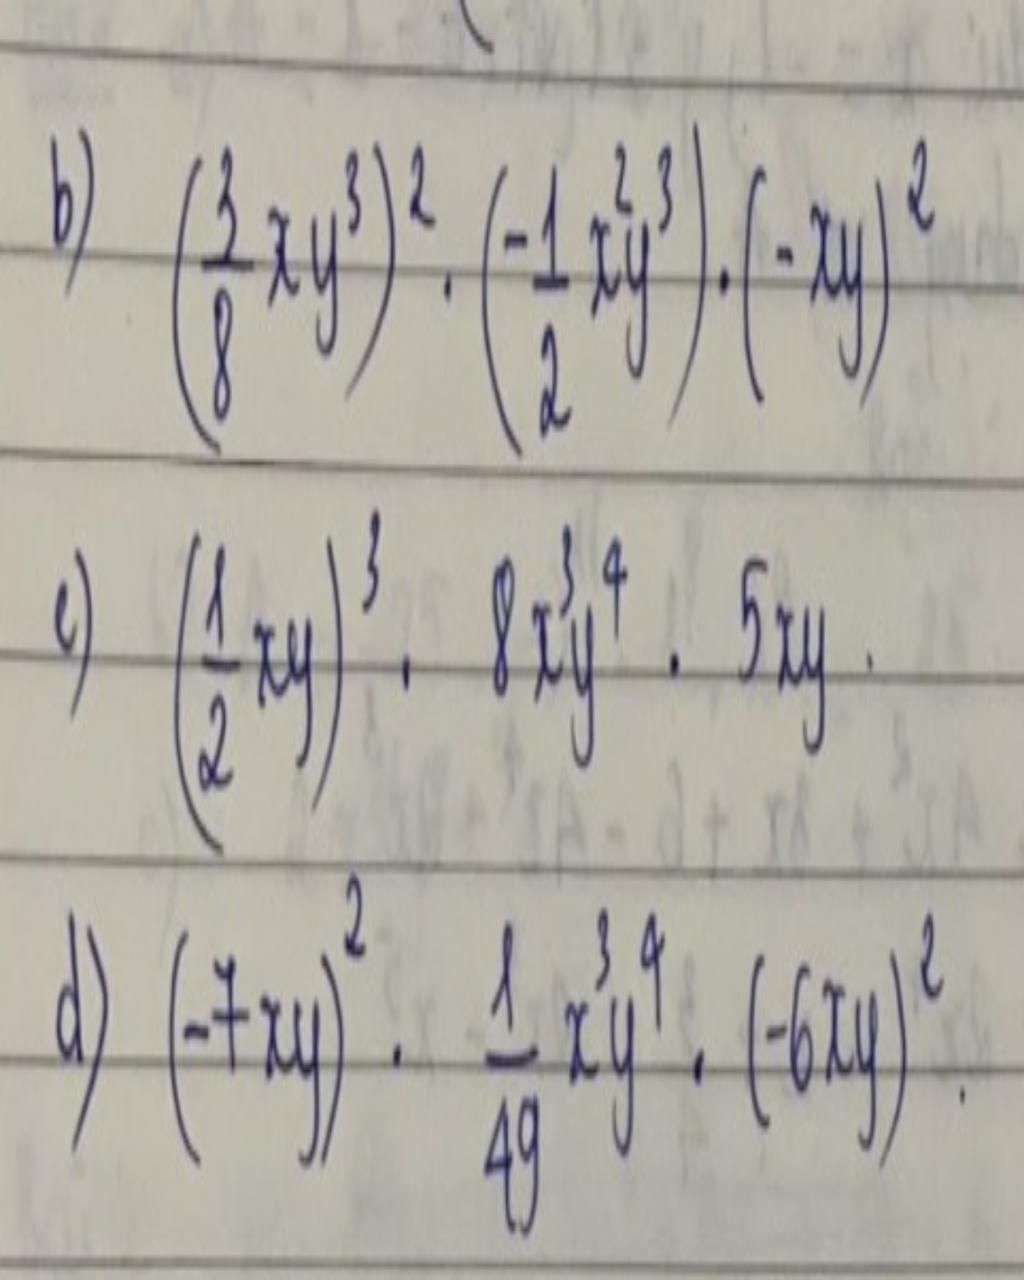 b) (3/8 xy³)² . (-1/2 x²y³) . (-xy)²
c) (1/2 xy)³ . 8x³y⁴ . 5xy .
d) (-7xy)² . 1/49 x³y⁴ . (-6xy)² .